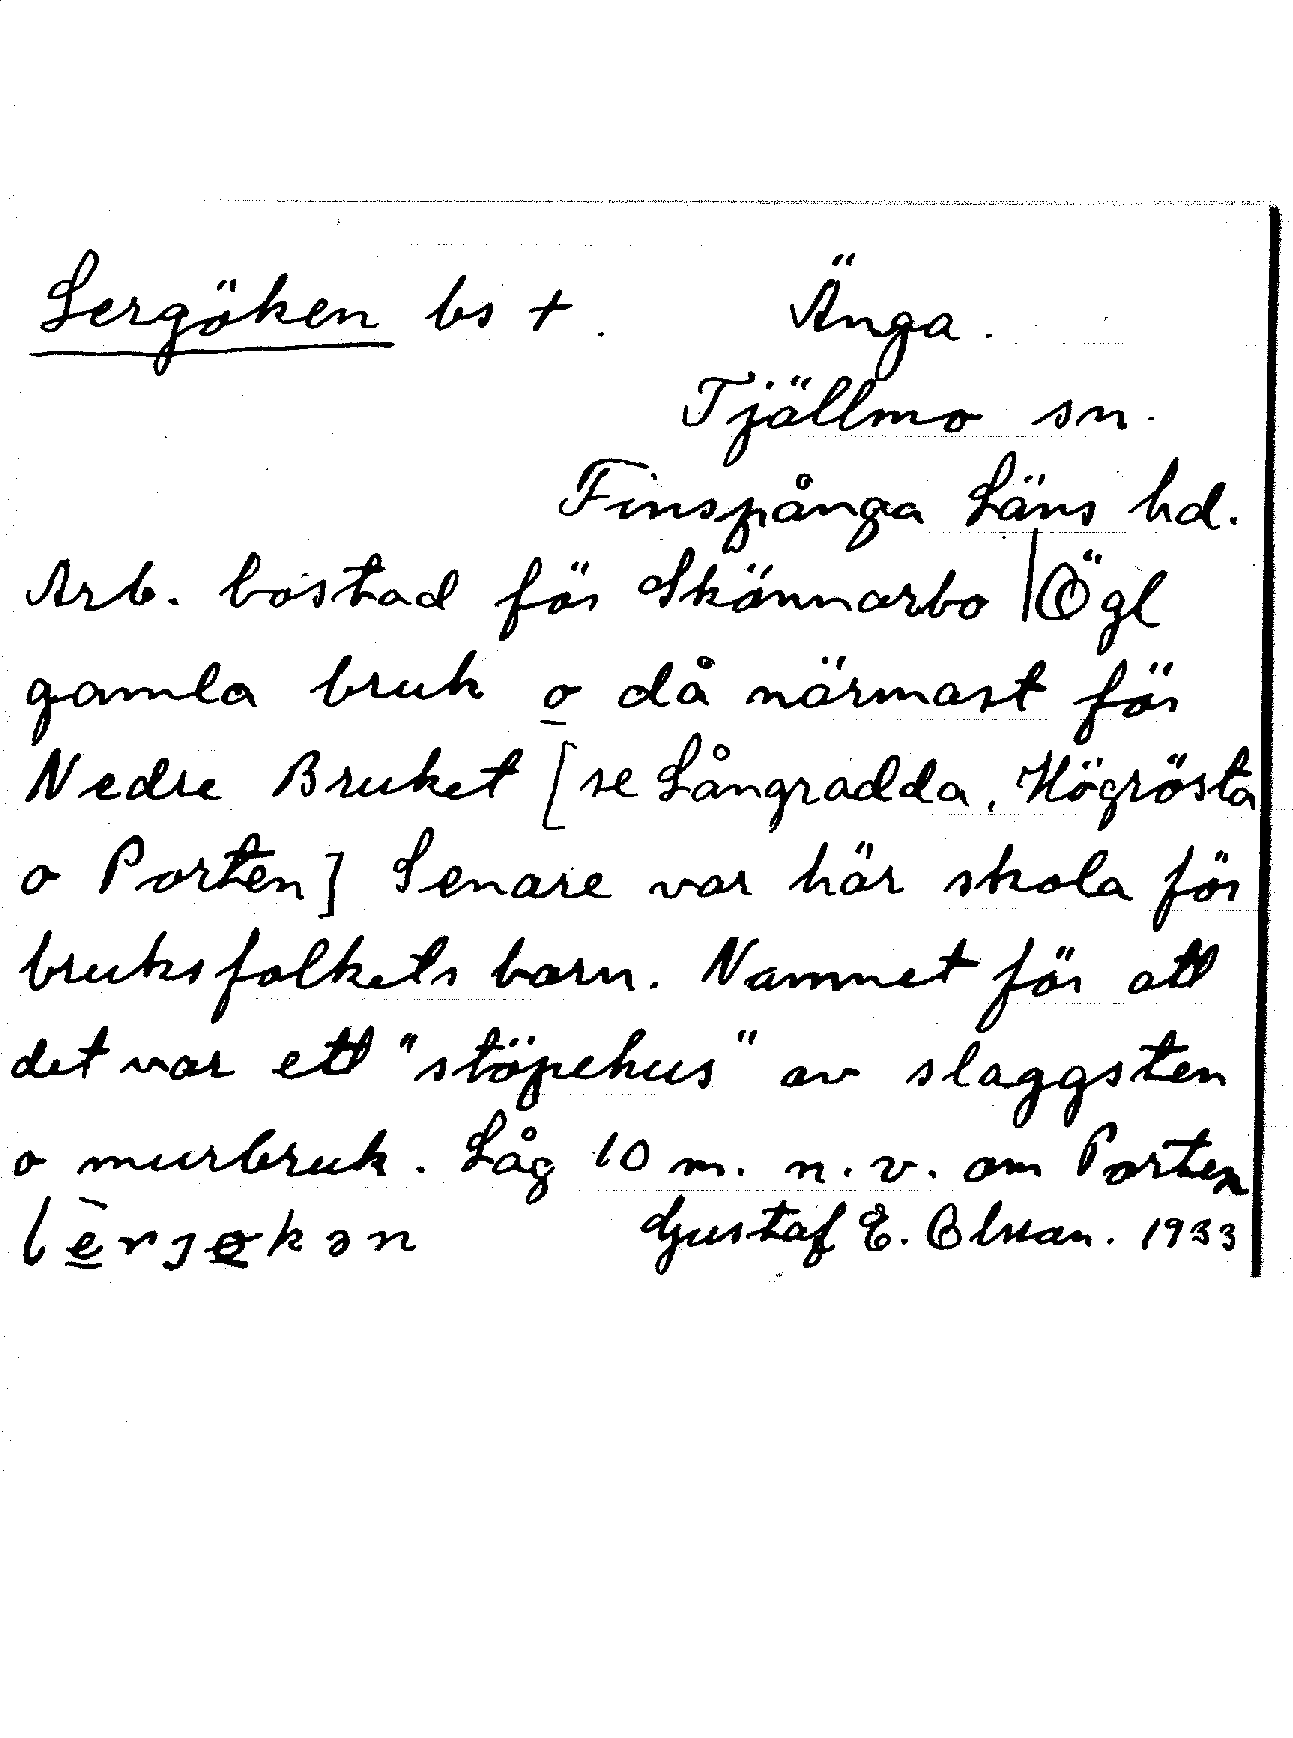 Lergöken bs + . Änga.
Tjällmo sn.
Finspånga Läns hd.
Arb. bostad för Skönnarbo | Ögl
gamla bruk o då närmast för
Nedre Bruket [se Långradda, Högrösta
o Porten] Senare var här skola för
bruksfolkets barn. Namnet för att
det var ett "stöpehus" av slaggsten
o murbruk. Låg 10 m. n.v. om Porten
lèrjøkən Gustaf E. Olsson. 1933